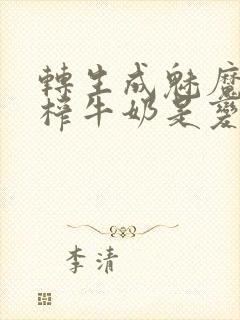 轉生成魅魔
榨牛奶是變
李清